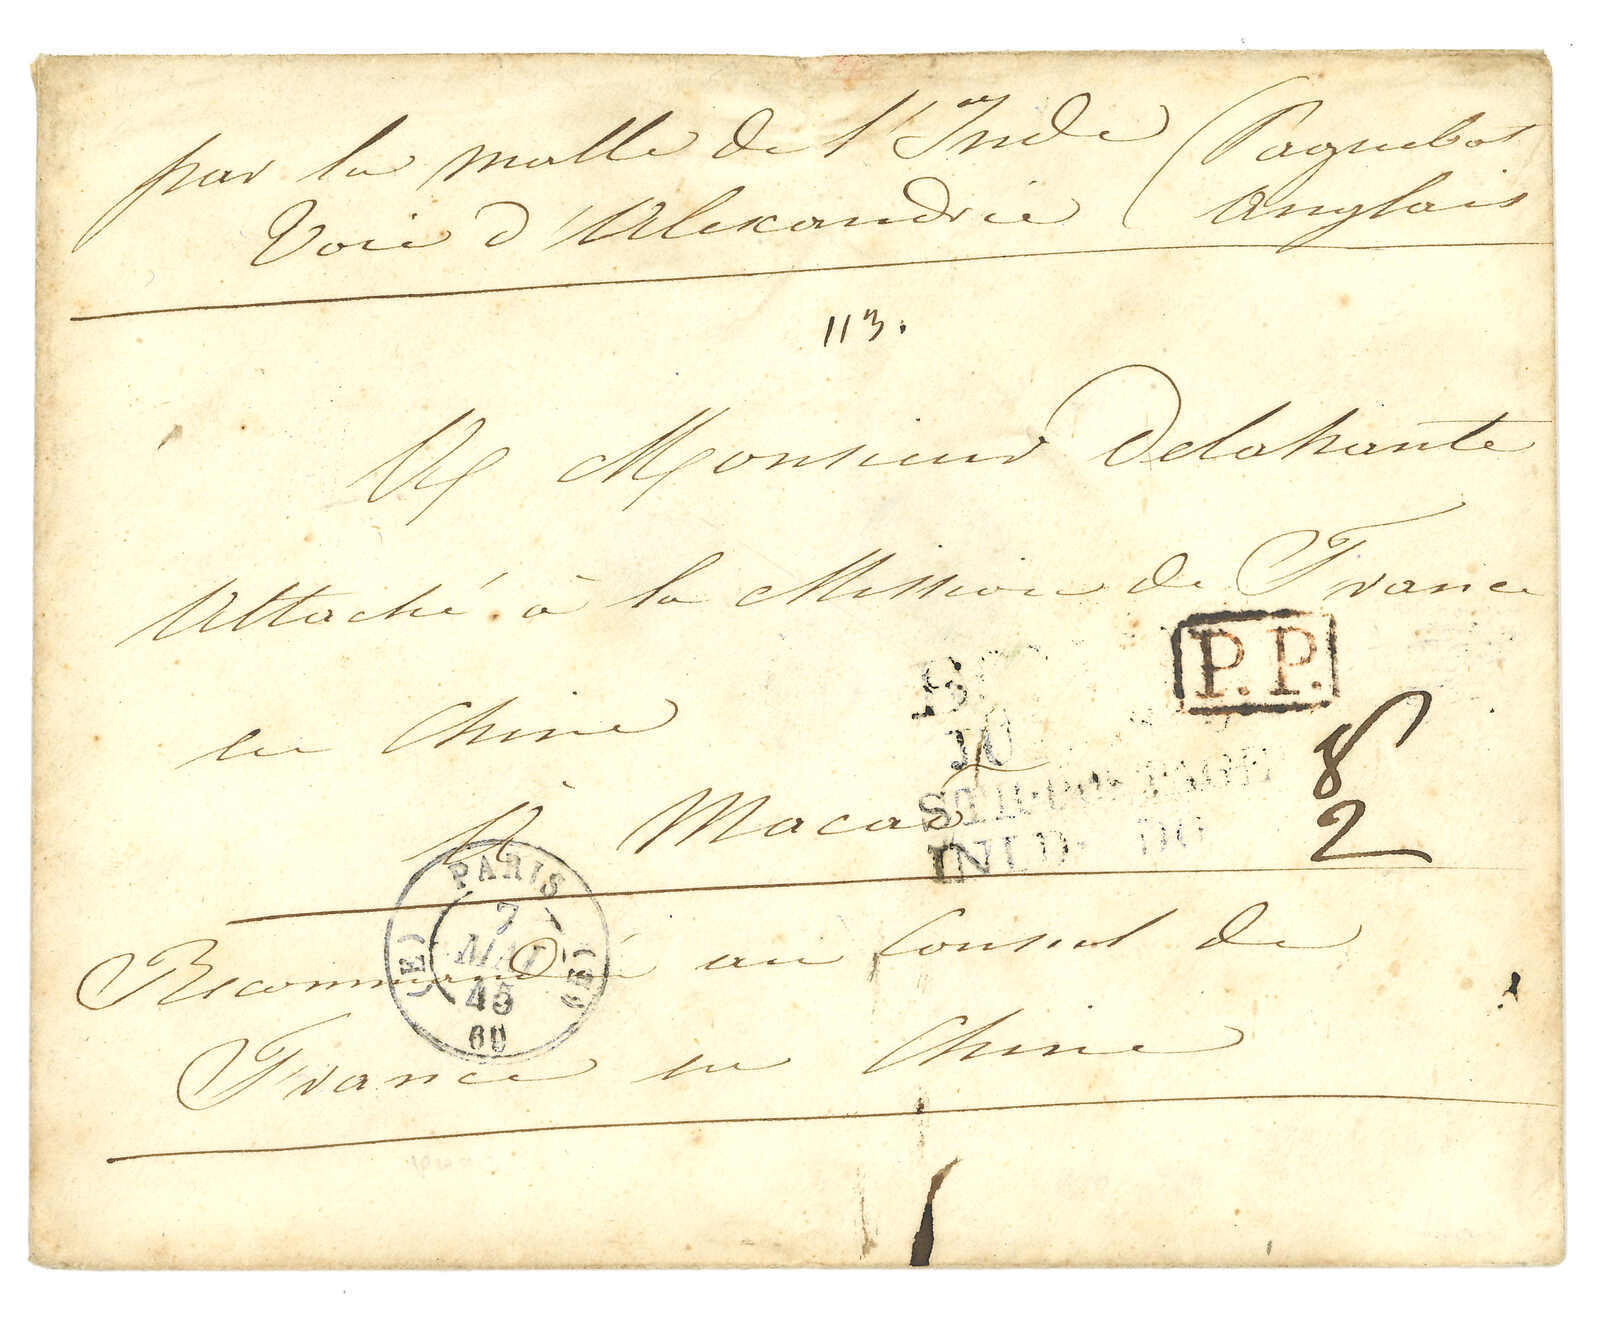 par la malle de l'Inde (Paquebot
Voie d'Alexandrie Anglais
113.
A Monsieur Delahante
Attaché à la Mission de France
P.P.
en Chine
8
A Macao
STR POSTAGE
2
INLD DO
PARIS
7
MAI
45
(E) (E)
60
Recommandé au Consul de
France en Chine